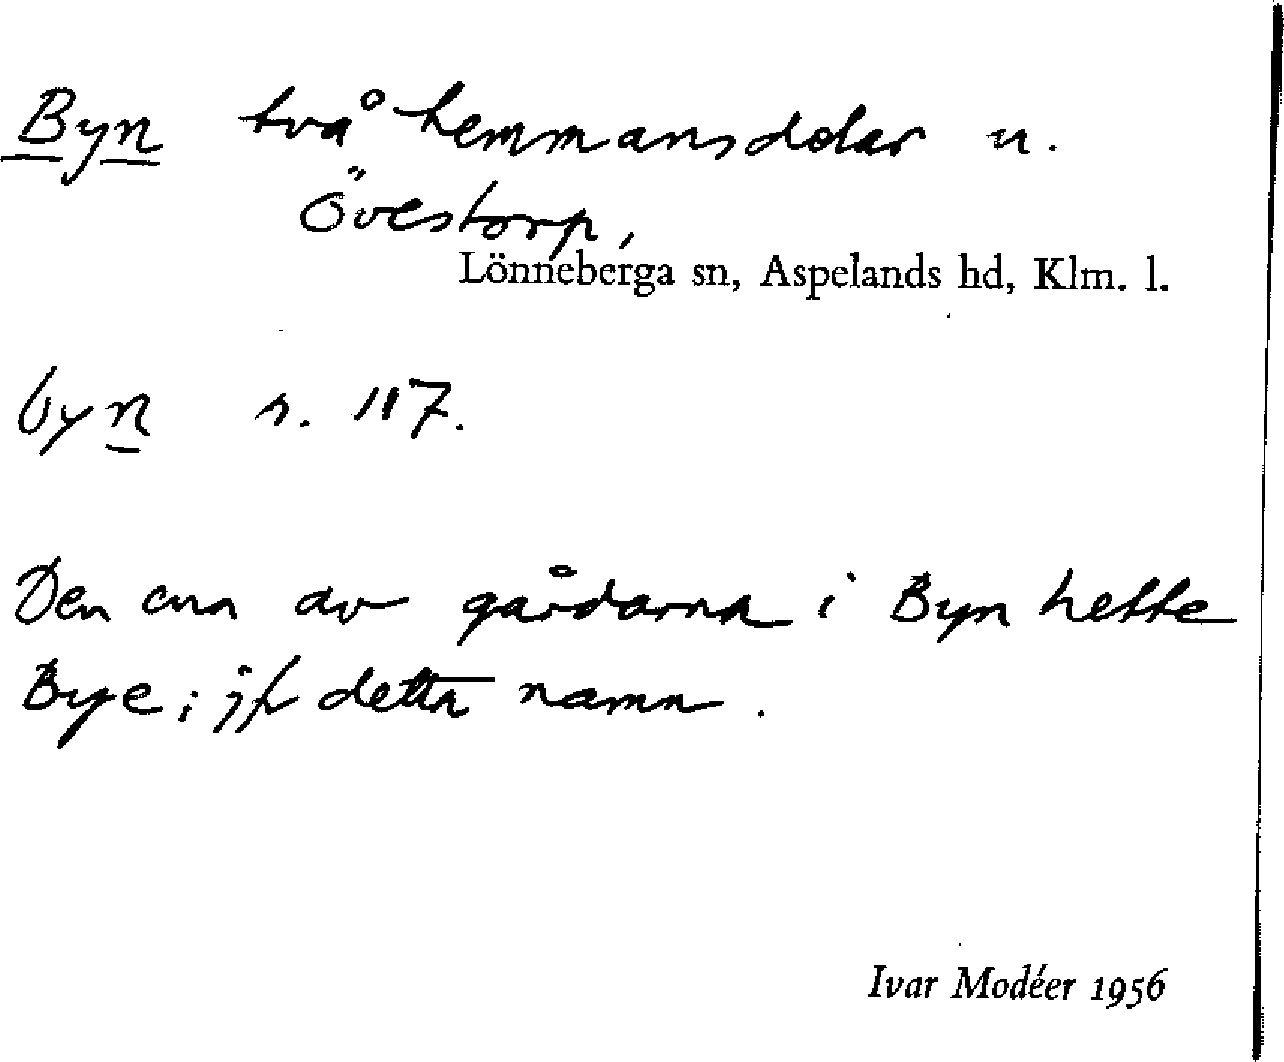 Byn två hemmansdelar u.
Övestorp,
Lönneberga sn, Aspelands hd, Klm. l.
byn s. 117.
Den ena av gårdarna i Byn hette
Bye; jfr detta namn.
Ivar Modéer 1956